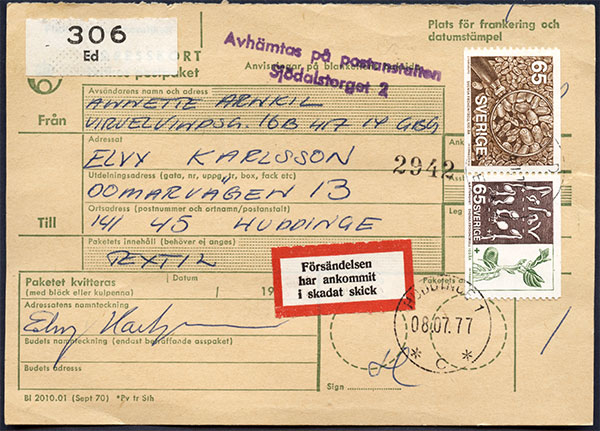 306
Ed
ORT
postpaket
Avhämtas på postanstalten
Sjödalstorget 2
Anvisningar på blankettens
Plats för frankering och
datumstämpel
Avsändarens namn och adress
Från
ANNETTE ARNKIL
VIRVELVINDSG. 16B 417 14 GBG
Adressat
ELVY KARLSSON
2942
Ank
Utdelningsadress (gata, nr, uppg, tr, box, fack etc)
DOMARVÄGEN 13
Ass
Ortsadress (postnummer och ortnamn/postanstalt)
Till
141 45 HUDDINGE
Leg
Paketets innehåll (behöver ej anges)
TEXTIL
65
SVERIGE
65
SVERIGE
Försändelsen
har ankommit
i skadat skick
Paketet kvitteras
(med bläck eller kulpenna)
Datum
19
Paketets
Adressatens namnteckning
HUDDINGE 1
08.07.77
* C *
Budets namnteckning (endast beträffande asspaket)
Budets adress
Sign
BI 2010.01 (Sept 70) *Pv tr Sth